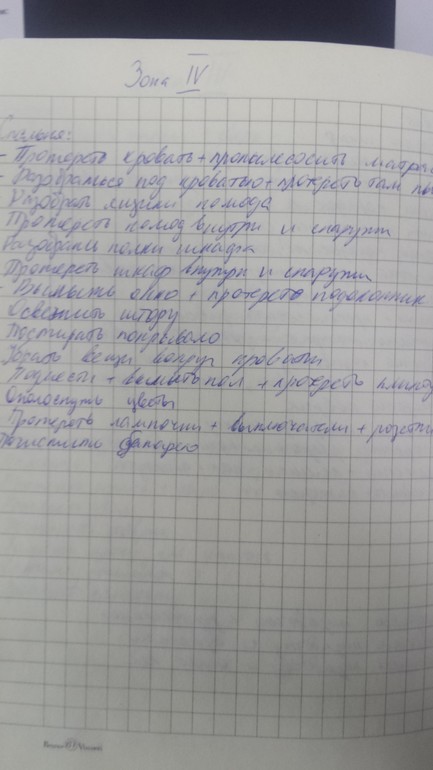 Зона IV
Спальня:
- Протереть кровать + пропылесосить матрас
- Разобраться под кроватью + протереть там
Разобрать ящики комода
Протереть комод внутри и снаружи
Разобрать полки шкафа
Протереть шкаф внутри и снаружи
- Вымыть окно + протереть подоконник
Освежить штору
Постирать покрывало
Убрать вещи вокруг кровати
+ вымыть пол + протереть плинтус
Ополоснуть цветы
Протереть лампочки + выключатели + розетки
Почистить
Bruno Visconti